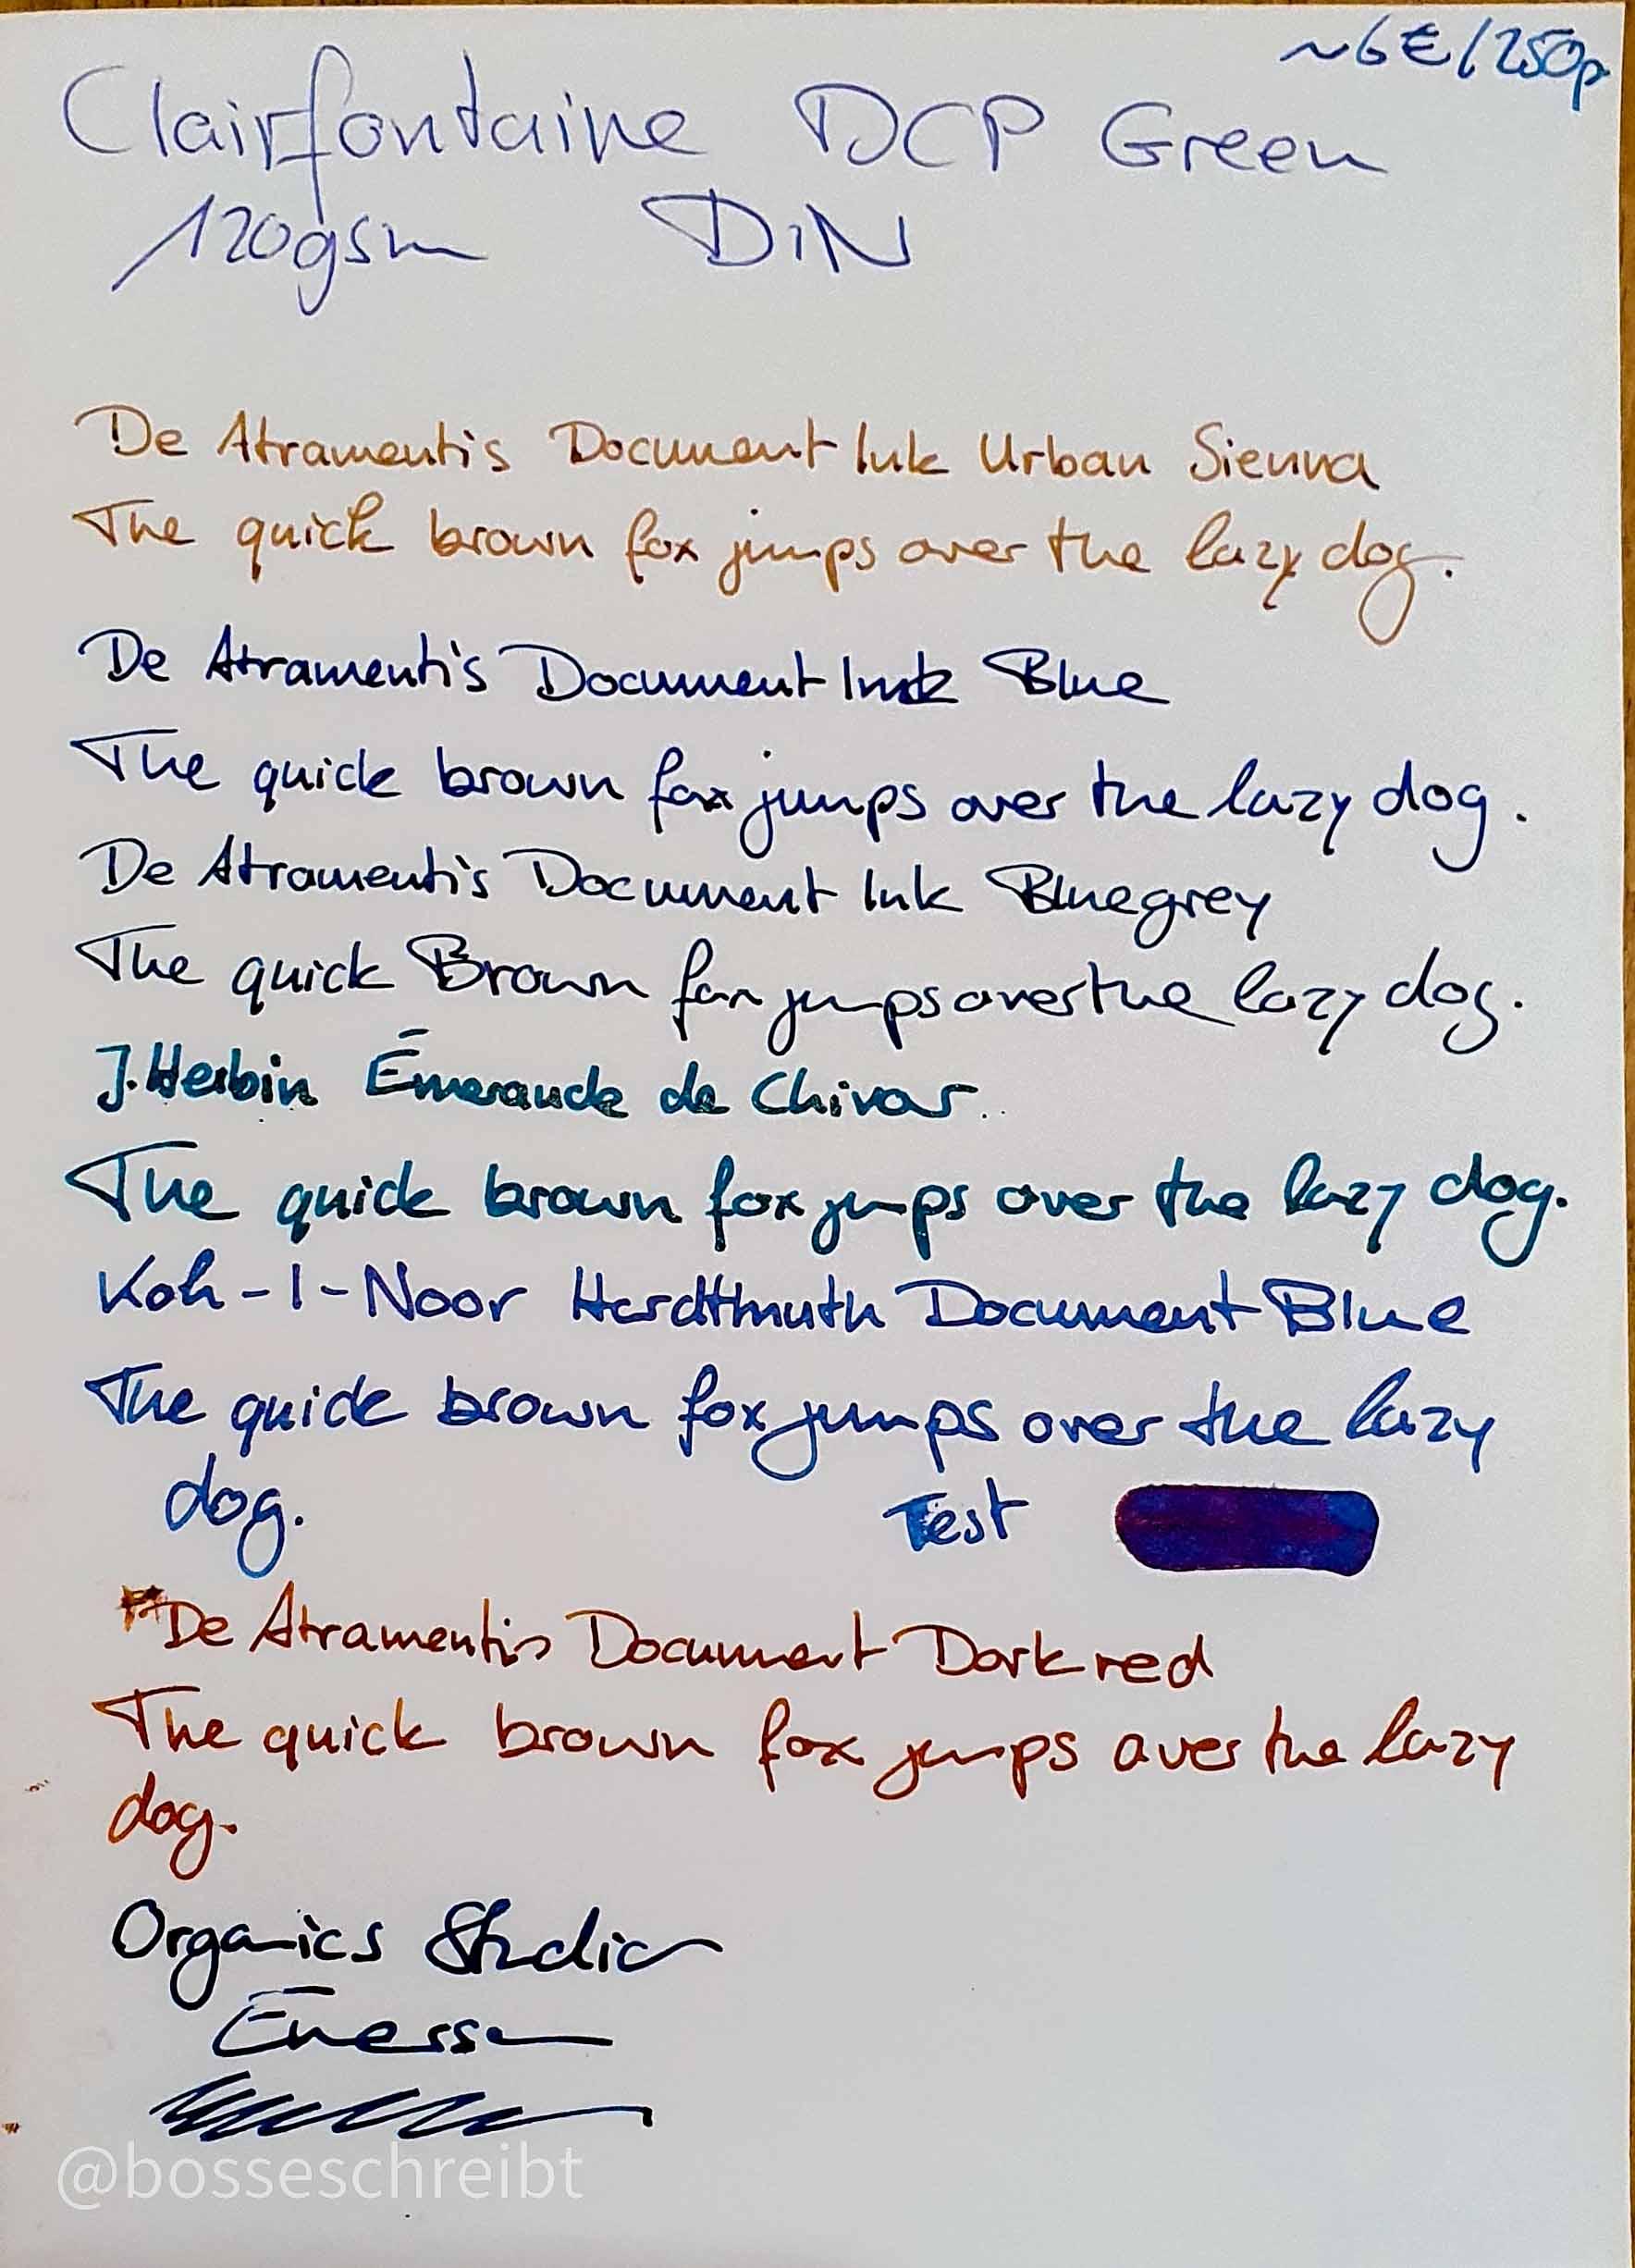 ~6€/250p
Clairfontaine DCP Green
120gsm DIN
De Atramentis Document Ink Urban Sienna
The quick brown fox jumps over the lazy dog.
De Atramentis Document Ink Blue
The quick brown fox jumps over the lazy dog.
De Atramentis Document Ink Bluegrey
The quick Brown fox jumps over the lazy dog.
J. Herbin Émeraude de Chivor
The quick brown fox jumps over the lazy dog.
Koh-I-Noor Hardtmuth Document Blue
The quick brown fox jumps over the lazy
dog. Test
De Atramentis Document Darkred
The quick brown fox jumps over the lazy
dog.
Organics Studio
@bosseschreibt